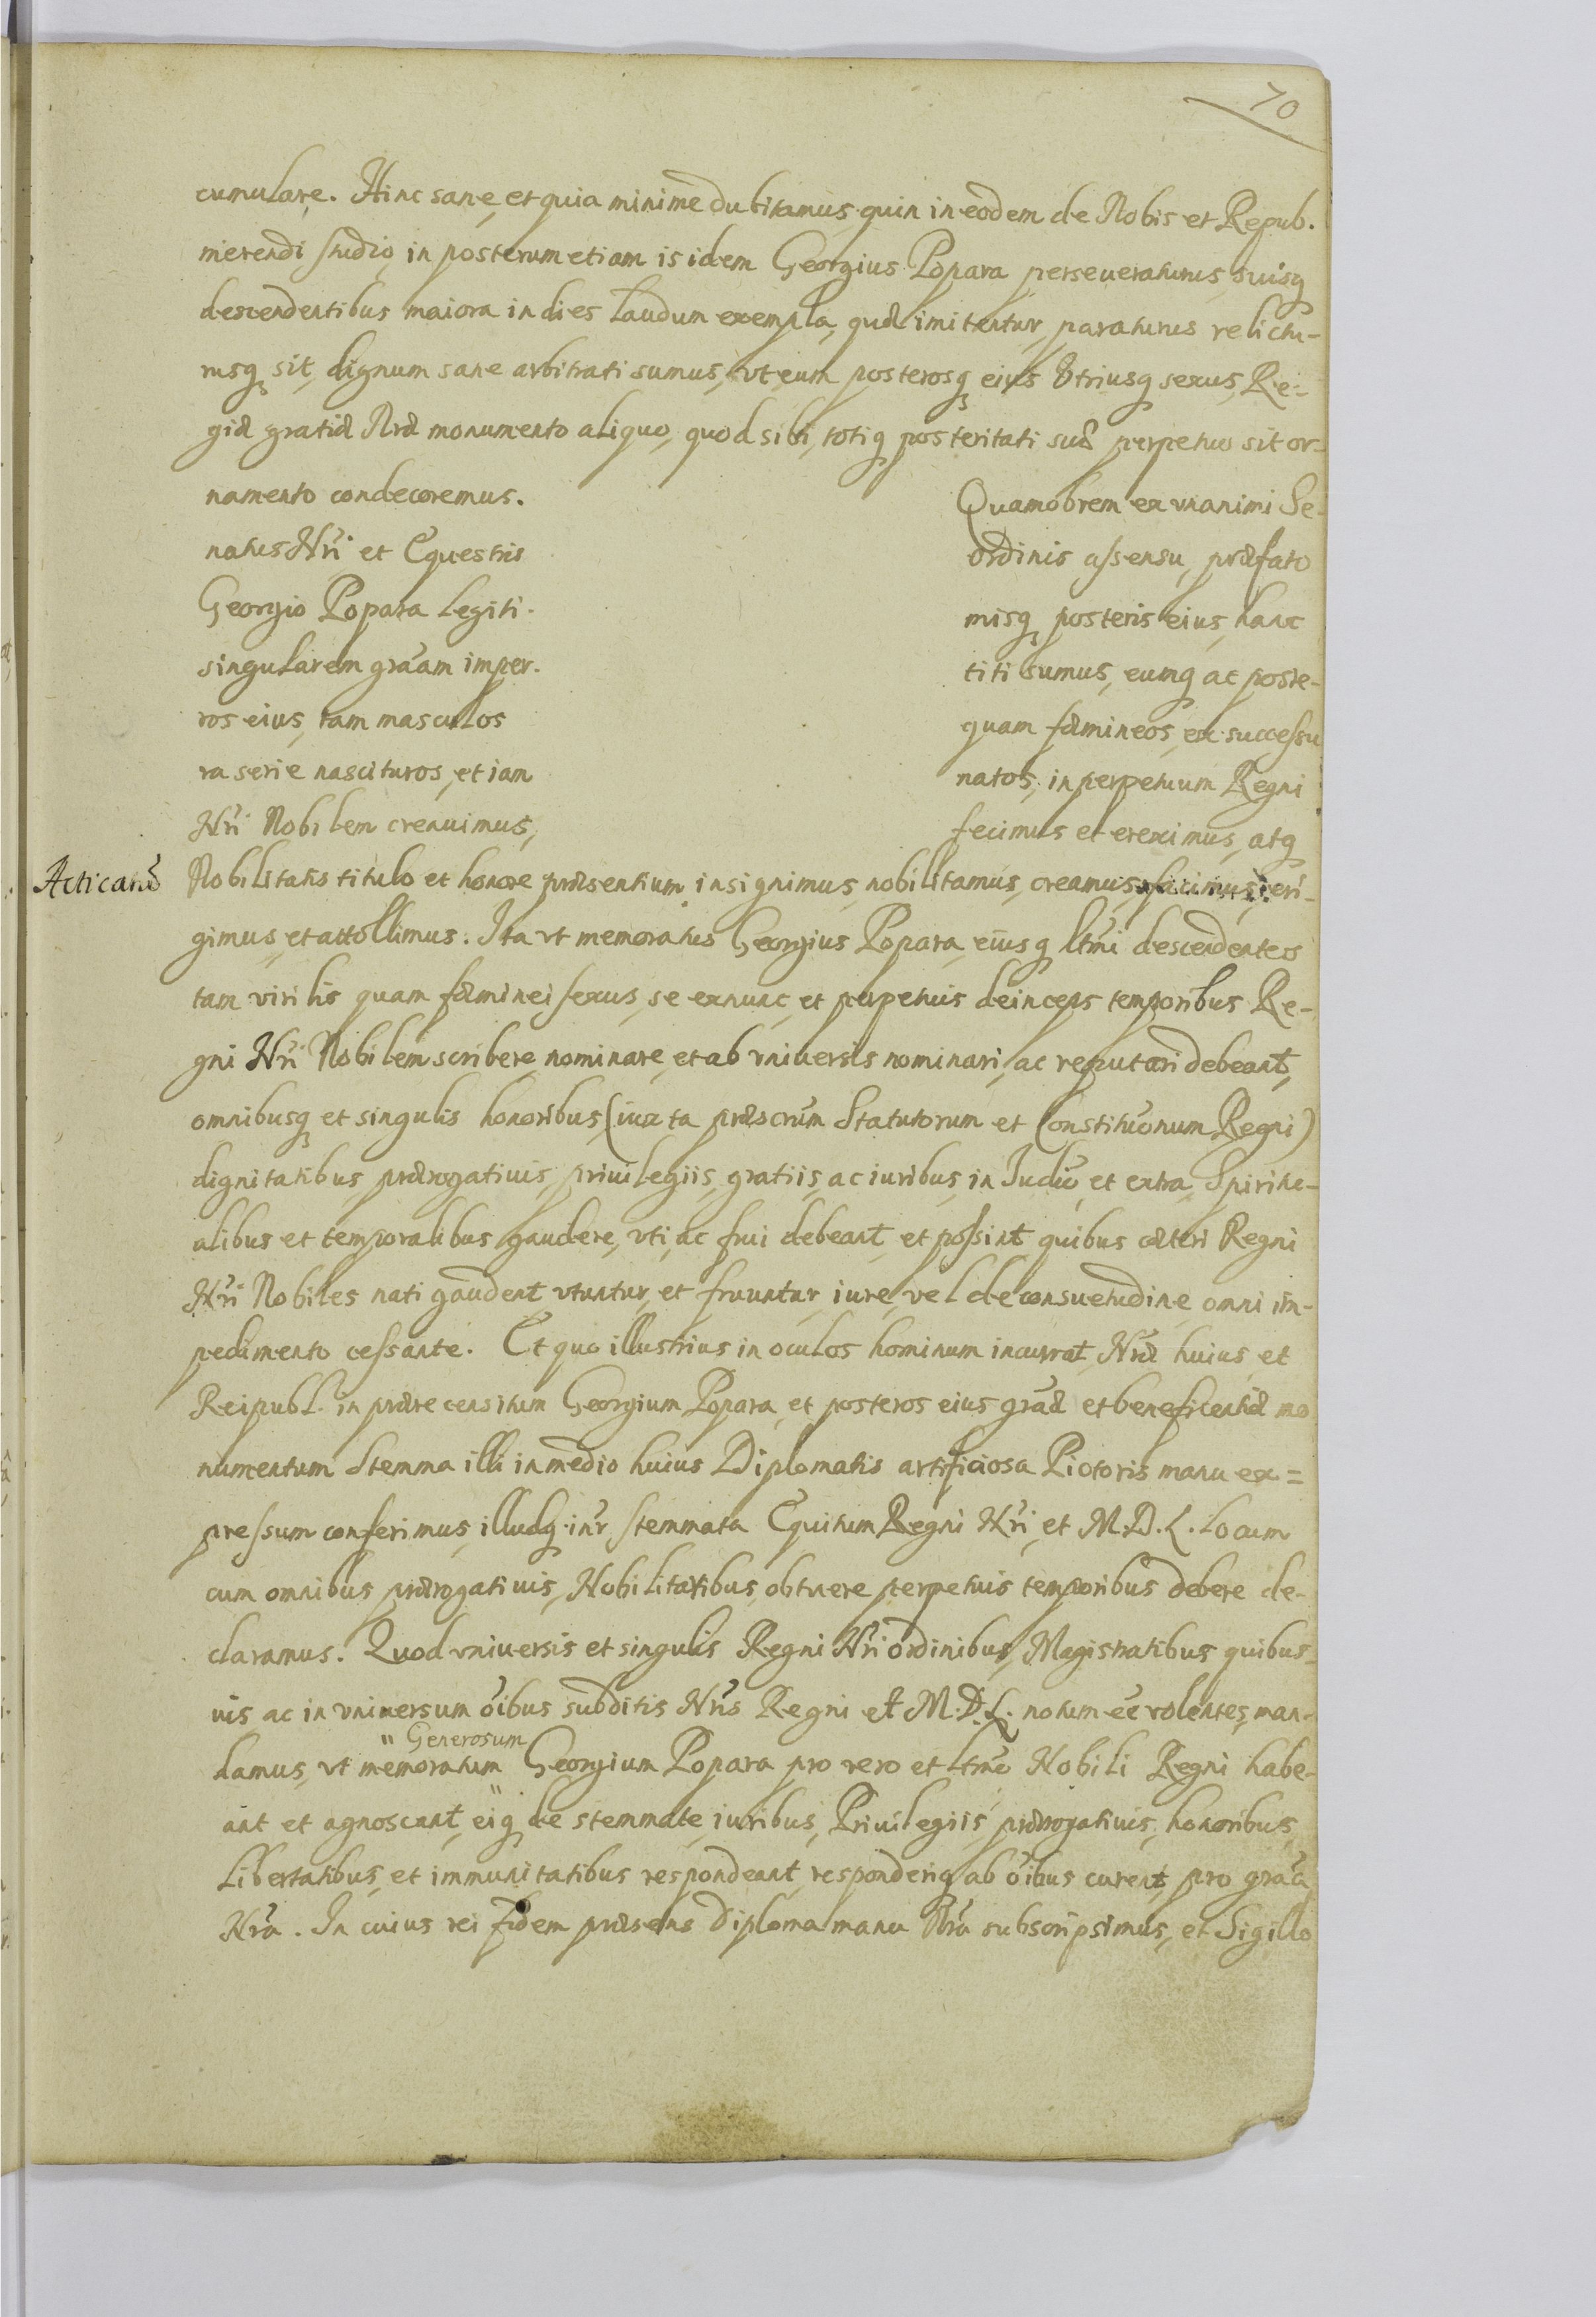 70
cumulare. Hinc sane, et quia minime dubitamus, quin in eodem de Nobis et Repub.
merendi studio, in posterum etiam is idem Georgius Popara perseueraturus, suisq
descendentibus maiora in dies laudum exempla, quæ imitentur, paraturus relictu-
rusq sit, dignum sane arbitrati sumus, vt eum posterosq eius vtriusq sexus, Re-
giæ gratiæ Nræ monumento aliquo, quod sibi, totiq posteritati suæ perpetuo sit or-
namento condecoremus. Quamobrem ex vnanimi Se-
natus Nri et Equestris ordinis assensu, præfato
Georgio Popara legiti- misq posteris eius, hanc
singularem grãam imper- titi sumus, eumq ac poste-
ros eius, tam masculos quam fæmineos, ex successu
ra serie nascituros, et iam natos, in perpetuum Regni
Nri Nobilem creauimus, fecimus et ereximus, atq
Acticañ Nobilitatis titulo et honore præsentium insignimus, nobilitamus, creamus, facimus, eri-
gimus, et attollimus. Ita vt memoratus Georgius Popara, eiusq ltmi descendentes
tam virilis quam fæminei sexus, se exnunc, et perpetuis deinceps temporibus Re-
gni Nri Nobilem scribere, nominare, et ab vniuersis nominari, ac reputari debeant,
omnibusq et singulis honoribus, (iuxta præscrum Statutorum et Constituonum Regni)
dignitatibus, prærogatiuis, priuilegiis, gratiis, ac iuribus, in Iudic̃o, et extra, Spiritu-
alibus et temporalibus gaudere, vti, ac frui debeant, et possint quibus cæteri Regni
Nri Nobiles nati gaudent, vtuntur, et fruuntur iure, vel de consuetudine, omni im-
pedimento cessante. Et quo illustrius in oculos hominum incurrat, Nræ huius, et
Reipubl. in prærecensitum Georgium Popara, et posteros eius grãæ et beneficentiæ mo
numentum Stemma illi in medio huius Diplomatis artificiosa Pictoris manu ex=
pressum conferimus, illudq intr stemmata Equitum Regni Nri, et M.D.L. locum
cum omnibus prærogatiuis, Nobilitatibus, obtinere perpetuis temporibus debere de-
claramus. Quod vniuersis et singulis Regni Nri ordinibus, Magistratibus quibus-
uis, ac in vniuersum oibus subditis Nris Regni et M.D.L. notum ee volentes, man-
" Generosum
damus, vt memoratum Georgium Popara pro vero et ltmo Nobili Regni habe-
ant et agnoscant, eiq de stemmate, iuribus, Priuilegiis, prærogatiuis, honoribus,
libertatibus, et immunitatibus respondeant, responderiq ab oibus curent, pro grãa
Nra. In cuius rei fidem præsens Diploma manu Nra subscripsimus, et Sigillo